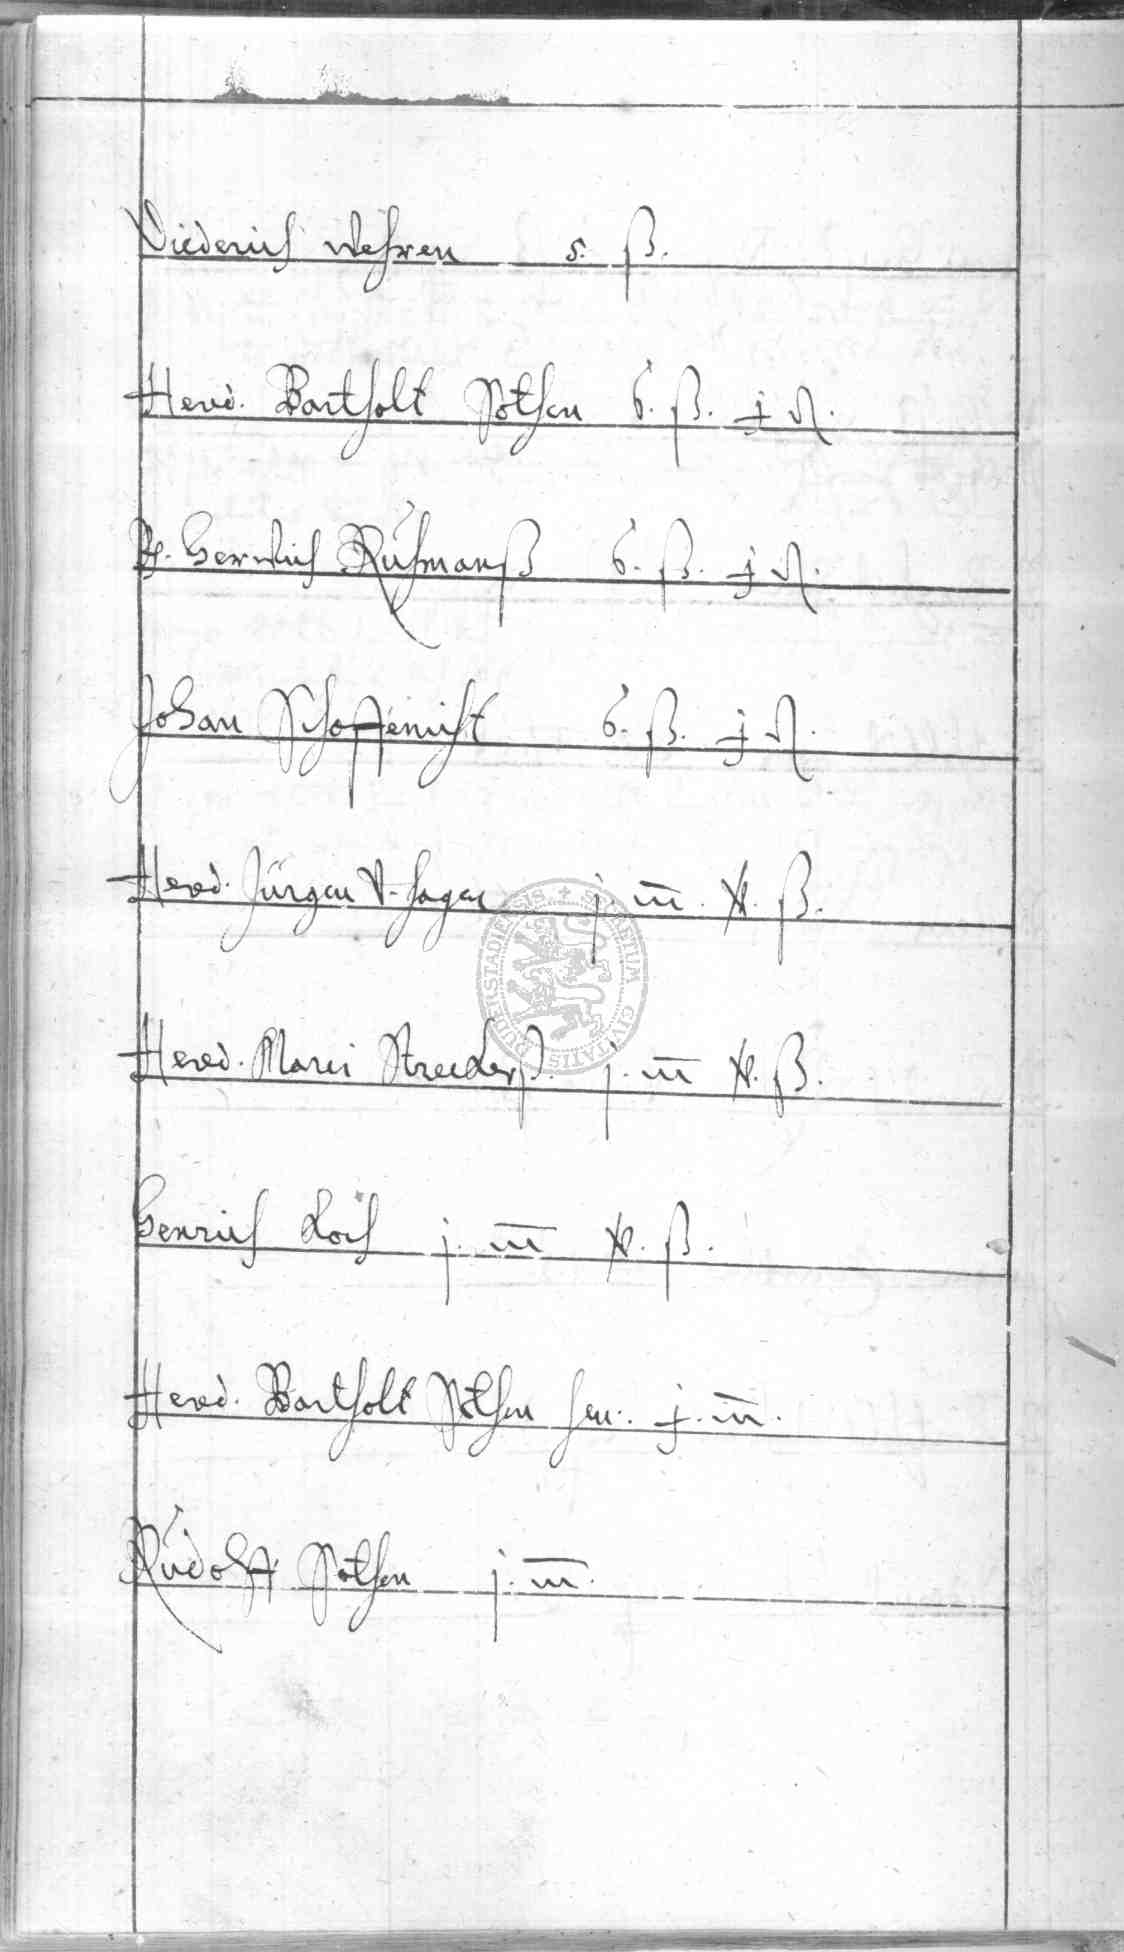 Diederich Wehren 5. ß.
Hered. Bartholt Pothen 6. ß. j ₰.
H. Henrich Ruhmanß 6. ß. j ₰.
Johan 6. ß. j ₰.
Hered. Jürgen V. Hagen j. m̅. ß.
Hered. Marci j. m̅ ß.
Henrich Koch j. m̅ ß.
Hered. Bartholt Pothen sen: j. m̅.
Rudolff Pothen j. m̅.
SECRETUM CIVITATIS DUDERSTADIENSIS